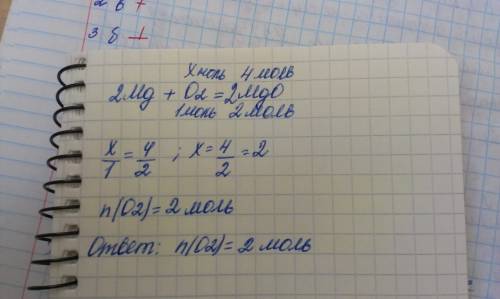 2 б +
3 б ⊥
х моль 4 моль
2Mg + O2 = 2MgO
1моль 2 моль
x/1 = 4/2 ; x = 4/2 = 2
n(O2) = 2 моль
Ответ: n(O2) = 2 моль